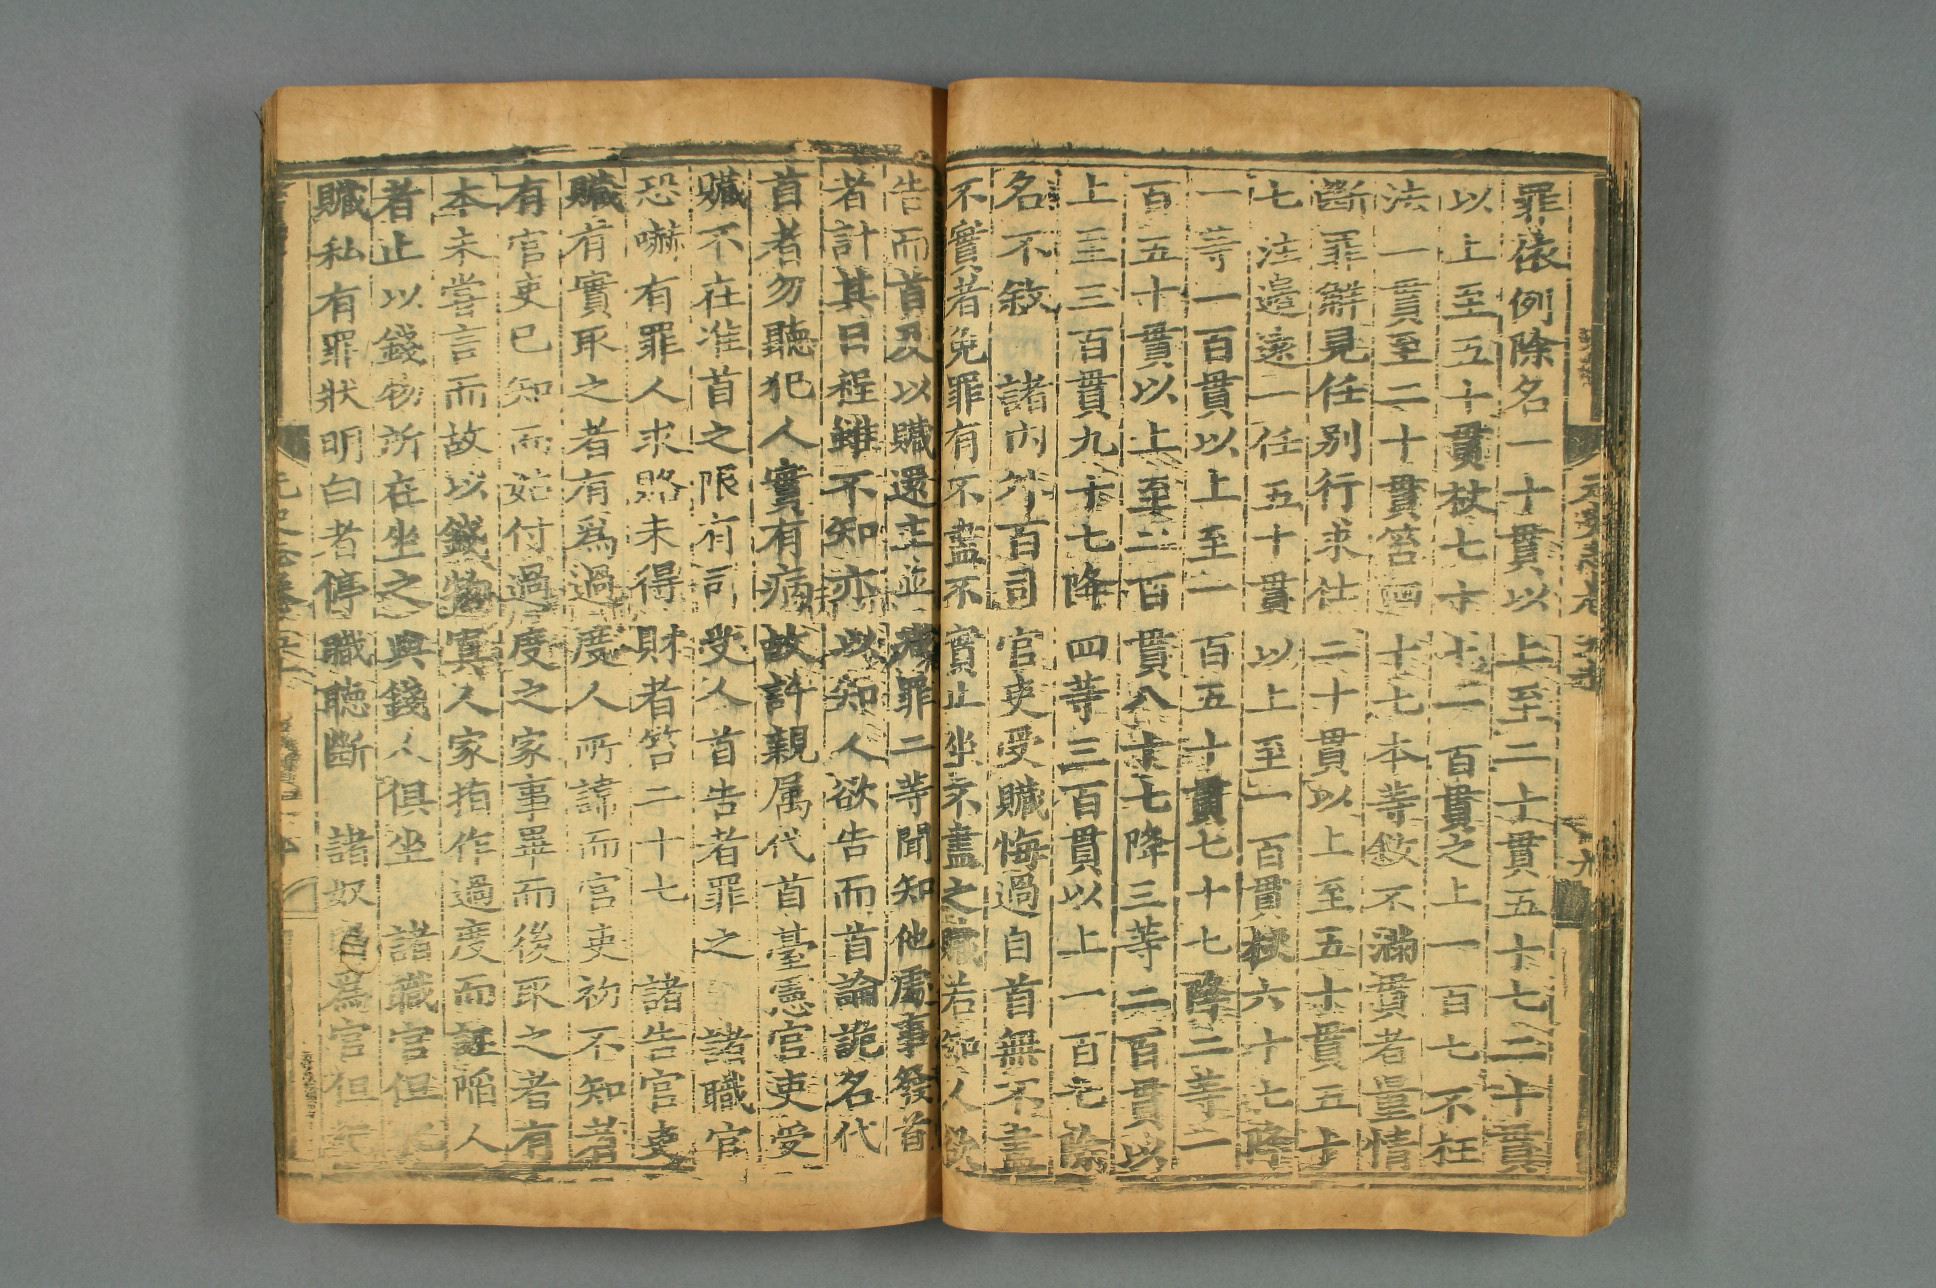 罪依例除名一十貫以上至二十貫五十七二十貫
以上至五十貫杖七十七一百貫之上一百七不枉
法一貫至二十貫笞四十七本等敘不滿貫者量情
斷罪解見任別行求仕二十貫以上至五十貫五十
七注邊遠一任五十貫以上至一百貫杖六十七降
一等一百貫以上至一百五十貫七十七降二等一
百五十貫以上至二百貫八十七降三等二百貫以
上至三百貫九十七降四等三百貫以上一百七除
名不敘 諸內外百司官吏受贓悔過自首無不盡
不實者免罪有不盡不實止坐不盡之贓若知人欲
告而首及以贓還主並減罪二等聞知他處事發首
者計其日程雖不知亦以知人欲告而首論詭名代
首者勿聽犯人實有病故許親屬代首臺憲官吏受
贓不在准首之限有司受人首告者罪之 諸職官
恐嚇有罪人求賂未得財者笞二十七 諸告官吏
贓有實取之者有爲過度人所諱而官吏初不知者
有官吏已知而姑付過度之家事畢而後取之者有
本未嘗言而故以錢物寘人家指作過度而誣陷人
者止以錢物所在坐之與錢人俱坐 諸職官但犯
贓私有罪狀明白者停職聽斷 諸奴賤爲官但